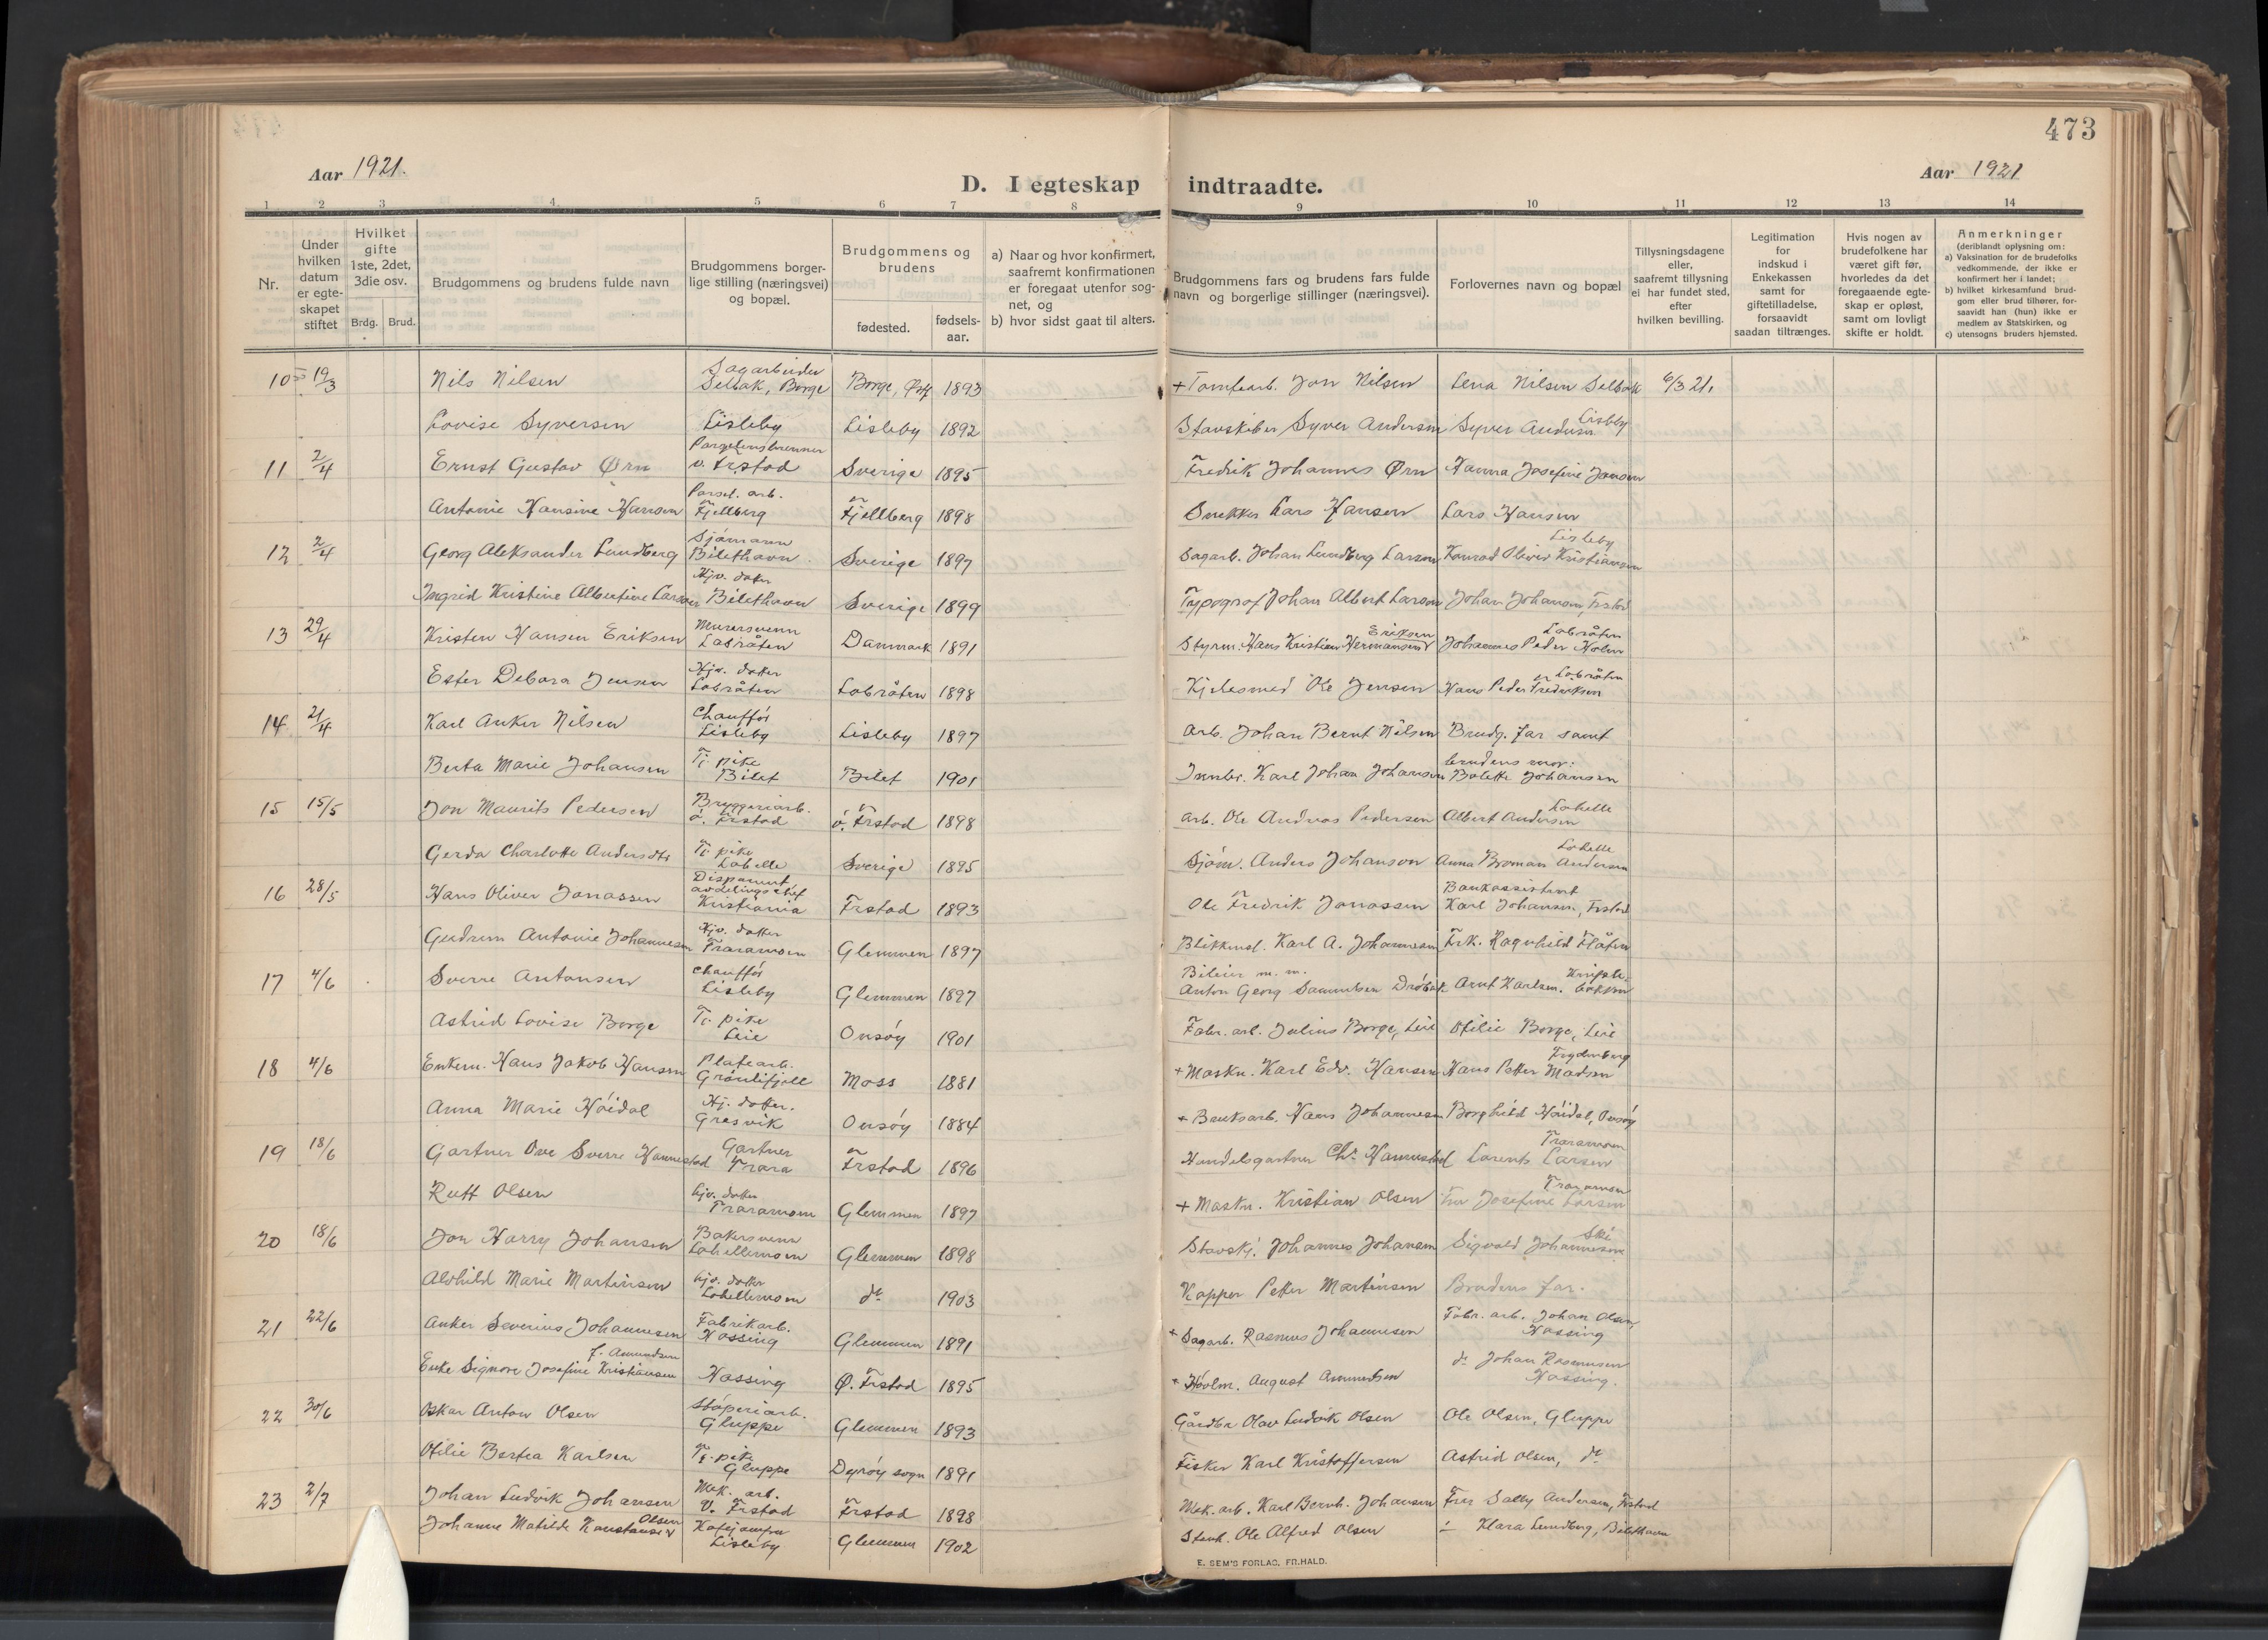 473
Aar 1921.
D. I egteskap indtraadte.
Aar 1921
1 2 3 4 5 6 7 8 9 10 11 12 13 14
Nr.
Under hvilken datum er egte-skapet stiftet
Hvilket gifte 1ste, 2det, 3die osv.
Brdg. Brud.
Brudgommens og brudens fulde navn
Brudgommens borger-lige stilling (næringsvei) og bopæl.
Brudgommens og brudens
fødested. fødsels-aar.
a) Naar og hvor konfirmert, saafremt konfirmationen er foregaat utenfor sog-net, og
b) hvor sidst gaat til alters.
Brudgommens fars og brudens fars fulde navn og borgerlige stillinger (næringsvei).
Forlovernes navn og bopæl
Tillysningsdagene eller, saafremt tillysning ei har fundet sted, efter hvilken bevilling.
Legitimation for indskud i Enkekassen samt for giftetilladelse, forsaavidt saadan tiltrænges.
Hvis nogen av brudefolkene har været gift før, hvorledes da det foregaaende egte-skap er opløst, samt om lovligt skifte er holdt.
Anmerkninger
(deriblandt oplysning om:
a) Vaksination for de brudefolks vedkommende, der ikke er konfirmert her i landet;
b) hvilket kirkesamfund brud-gom eller brud tilhører, for-saavidt han (hun) ikke er medlem av Statskirken, og
c) utensogns bruders hjemsted.
10 19/3 Nils Nilsen Sagarbeider Selbak, Borge Borge, Østf 1893 + Tomtearb. Jon Nilsen Lena Nilsen Selbak 6/3 21.
Lovise Syversen Lisleby Lisleby 1892 Stavskiber Syver Andersen Syver Andersen Lisleby
11 2/4 Ernst Gustav Ørn v. Frstad Sverige 1895 Fredrik Johannes Ørn Hanna Josefine Jansen
Antonie Hansine Hansen Porsel. arb. Fjellberg Fjellberg 1898 Snekker Lars Hansen Lars Hansen
12 2/4 Georg Aleksander Lundberg Sjömann Bilethavn Sverige 1897 Sagarb. Johan Lundberg Larson Konrad Oliver Kristiansen Lisleby
Ingrid Kristine Albertine Larson Hjv. dotter Bilethavn Sverige 1899 Typograf Johan Albert Larson Johan Johanson, Frstad
13 29/4 Kristen Hansen Eriksen Murersvenn Labråten Danmark 1891 Styrm. Hans Kristian Hermansen Eriksen Johannes Peder Holm Labråten
Ester Debora Jensen Hjv. dotter Labråten Labråten 1898 Kjelesmed Ole Jensen Hans Peder Fredriksen Labråten
14 21/4 Karl Anker Nilsen Chauffór Lisleby Lisleby 1897 Arb. Johan Bernt Nilsen Brudg. far samt
Berta Marie Johansen Tj. pike Bilet Bilet 1901 Karl Johan Johansen brudens mor: Bolette Johansen
15 15/5 Jon Maurits Pedersen Bryggeriarb. ö. Frstad ö. Frstad 1898 Arb. Ole Andreas Pedersen Albert Andersen Labelle
Gerda Charlotte Andersdtr Tj. pike Labelle Sverige 1895 Sjöm. Anders Johanson Anna Broman Andersen Labelle
16 28/5 Hans Oliver Jonassen Disponent avdelingschef Kristiania Frstad 1893 Ole Fredrik Jonassen Bankassistent Karl Johansen, Frstad
Gudrun Antonie Johannesen Hjv. dotter Traramoen Glemmen 1897 Blikkensl. Karl A. Johannesen Frk. Ragnhild Flåten
17 4/6 Sverre Antonsen Chauffór Lisleby Glemmen 1897 Bileier m. m. Anton Georg Samuelsen Dröbak Arnt Karlsen.
Astrid Lovise Borge Tj. pike Leie Onsöy 1901 Fabr. arb. Julius Borge, Leie Otilie Borge, Leie
18 4/6 Enkem. Hans Jakob Hansen Platearb. Grönlifjell Moss 1881 + Maskn. Karl Edv. Hansen Hans Petter Madsen Frydenberg
Anna Marie Höidal Hj. dotter. Gresvik Onsöy 1884 + Bruksarb. Hans Johannesen Borghild Höidal, Onsöy
19 18/6 Gartner Ove Sverre Hannestad Gartner Trara Frstad 1896 Handelsgartner Chr. Hannestad Lorents Larsen Traramoen
Rutt Olsen hjv. dotter Traramoen Glemmen 1897 + Maskn. Kristian Olsen Fru Josefine Larsen Traramoen
20 18/6 Jon Harry Johansen Bakersvenn Labellemoen Glemmen 1898 Stavskj. Johannes Johansen Sigvald Johannesen Ski
Alvhild Marie Martinsen hjv. dotter Labellemoen do 1903 Kapper Petter Martinsen Brudens far.
21 22/6 Anker Severius Johannesen Fabrikarb. Nossing Glemmen 1891 + Sagarb. Rasmus Johannesen Fabr. arb. Johan Olsen, Nossing
Enke Signora Josefine Kristiansen f. Amundsen Nossing Ø. Frstad 1895 + Hövlm. August Amundsen do Johan Rasmussen Nossing.
22 30/6 Oskar Anton Olsen Stöperiarb. Gluppe Glemmen 1893 Gårdbr Olav Ludvik Olsen Ole Olsen, Gluppe
Otilie Bertea Karlsen Tj. pike Gluppe Dyröy sogn 1891 Fisker Karl Kristoffersen Astrid Olsen, do
23 2/7 Johan Ludvik Johansen Mek. arb. V. Frstad Frstad 1898 Mek. arb. Karl Bernh. Johansen Fru Sally Andersen, Frstad
Johanne Matilde Konstanse Olsen Kafejomfru Lisleby Glemmen 1902 Stenh. Ole Alfred Olsen Klara Lundberg, Bilethavn
E. SEM'S FORLAG, FR.HALD.